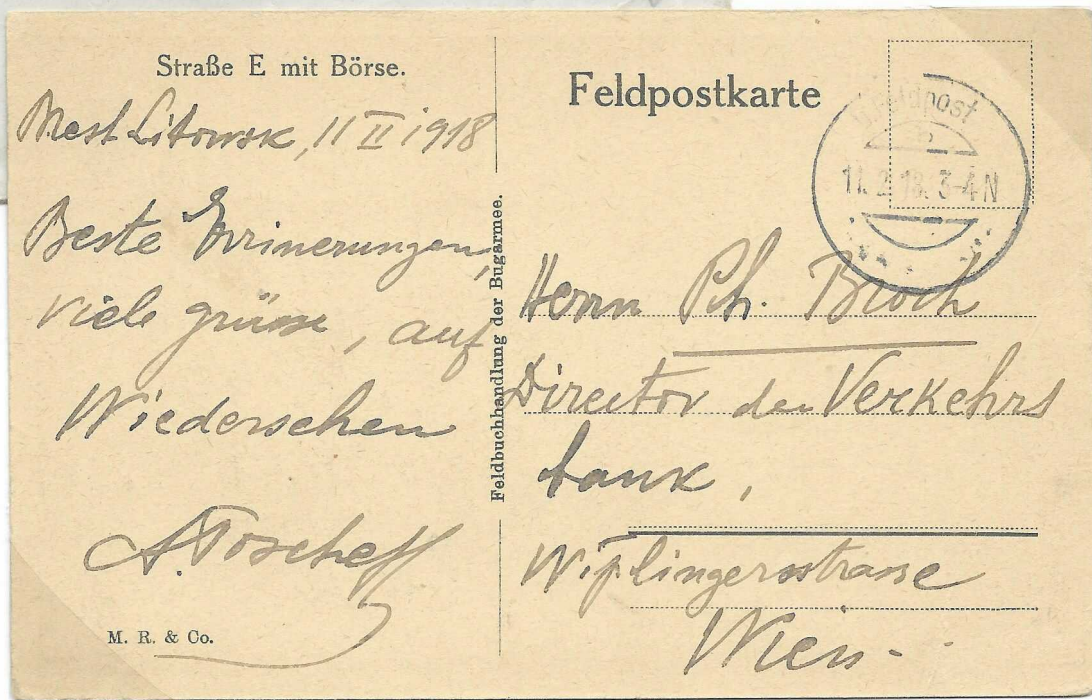 Straße E mit Börse.
Brest Litowsk, 11 II 1918
Beste Errinerungen,
viele grüsse, auf
Wiedersehen
A. Toscheff
M. R. & Co.
Feldbuchhandlung der Bugarmee.
Feldpostkarte
Feldpost
11. 2. 18. 3-4 N
Herrn Ph. Broch
Director der Verkehrs
bank,
Wiplingerstrasse
Wien.